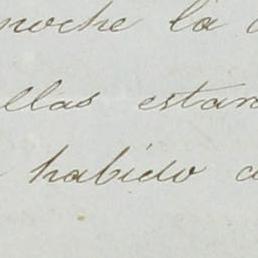 noche la
ellas estan
habido